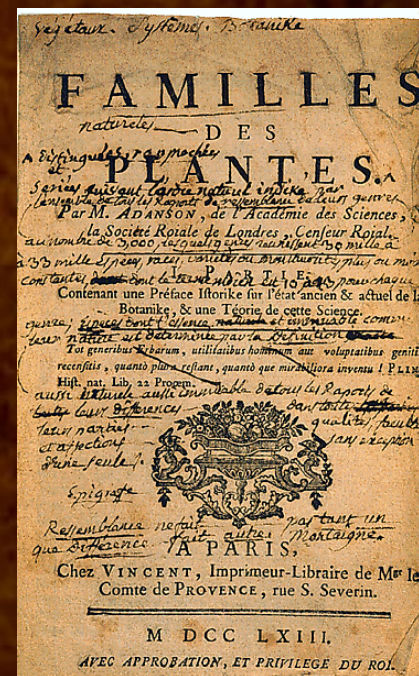 Végétaux. Systèmes. Botanike
FAMILLES
natureles
DES
Distinguées, raprochées
et
PLANTES.
Séries suivant l'ordre naturel indiké par
l'ensemble de tous les Raports de ressemblance de leurs genres
Par M. ADANSON, de l'Académie des Sciences,
la Société Roiale de Londres, Censeur Roial.
au nombre de 3,000 lesquels genres réunissent 30 mille à
33 mille Espèces, races, variétés ou plus ou moins
I. PARTIE.
constantes dont
Contenant une Préface Istorike sur l'état ancien & actuel de
Botanike, & une Téorie de cette Science.
genre; Espèces dont l'essence naturele et immuable come
leur nature est determinée par la
Tot generibus Erbarum, utilitatibus hominum aut voluptatibus geniti
recensitis, quantò plura restant, quantò que mirabiliora inventu! PLIN
Hist. nat. Lib. 22 Proœm.
aussi naturele aussi immuable de tous les Raports de
toutes leurs diférences dans toutes
leurs parties qualités, facultés
et affections sans exception
d'une seule.
Epigrafe
Ressemblance ne fait pas tant un
que Différence fait autre. Montaigne.
A PARIS,
Chez VINCENT, Imprimeur-Libraire de Mgr le
Comte de PROVENCE, rue S. Severin.
M DCC LXIII.
AVEC APPROBATION, ET PRIVILEGE DU ROI.